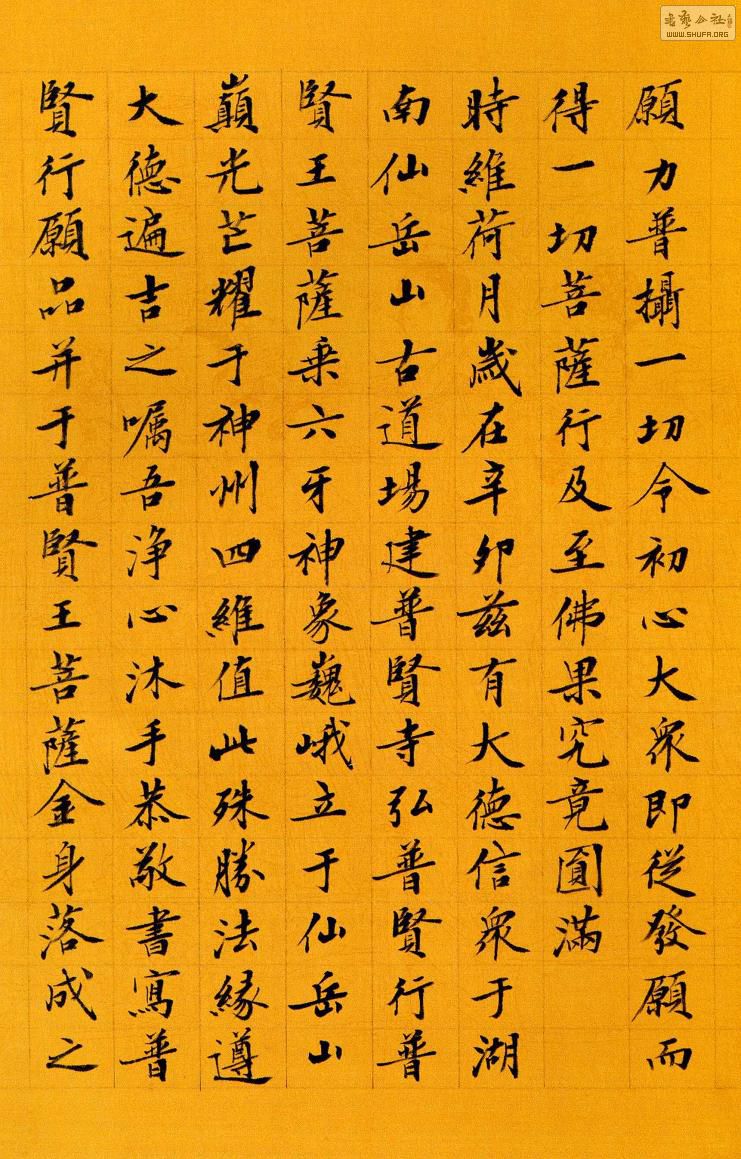 願力普攝一切令初心大眾即從發願而
得一切菩薩行及至佛果究竟圓滿
時維荷月歲在辛卯茲有大德信眾于湖
南仙岳山古道場建普賢寺弘普賢行普
賢王菩薩乗六牙神象巍峨立于仙岳山
巔光芒耀于神州四維值此殊勝法緣遵
大德遍吉之囑吾淨心沐手恭敬書寫普
賢行願品并于普賢王菩薩金身落成之
書藝公社
WWW.SHUFA.ORG